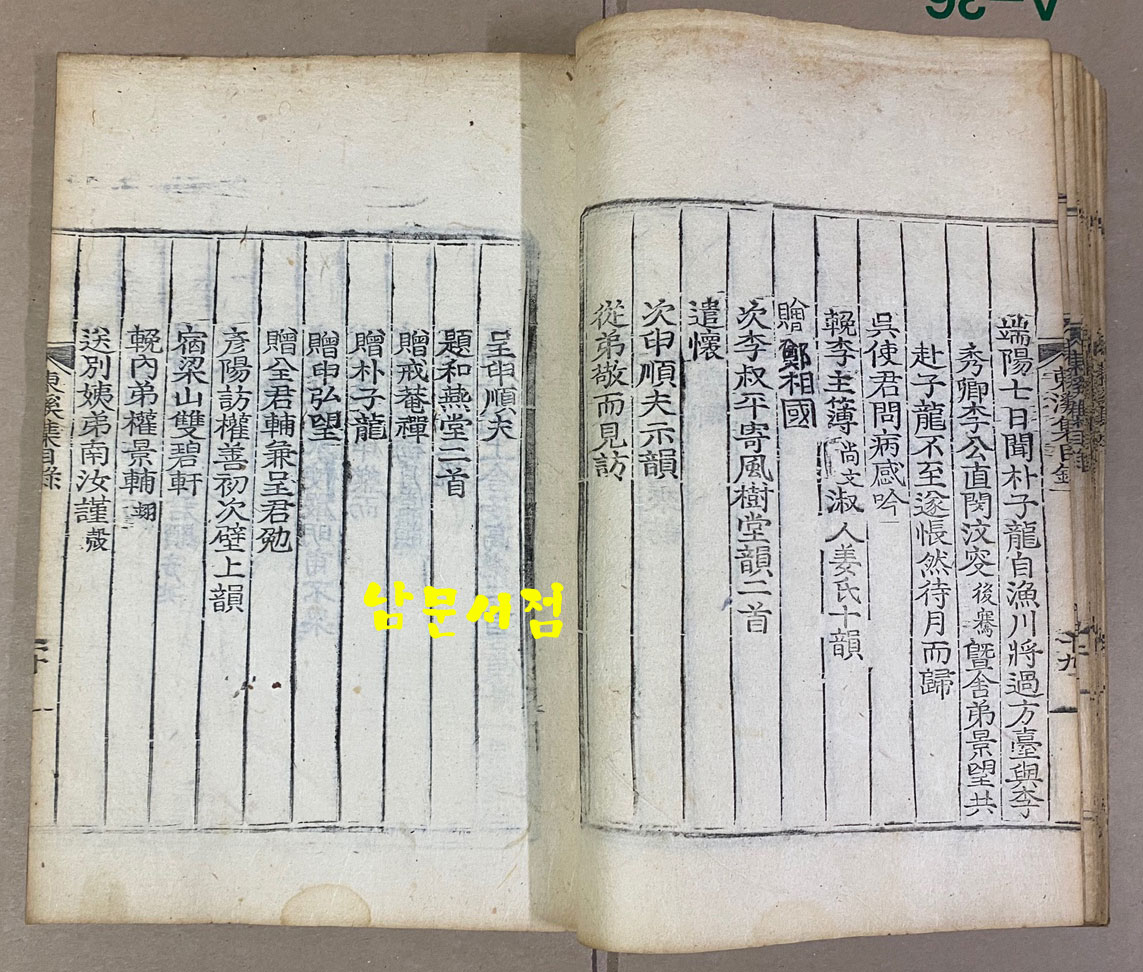 端陽七日聞朴子龍自漁川將過方臺與李
秀卿李公直閔汶窔後騫曁舍弟景望共
赴子龍不至遂悵然待月而歸
吳使君問病感吟
輓李主簿尚文淑人姜氏十韻
贈鄭相國
次李叔平寄風樹堂韻二首
遣懷
次申順夫示韻
從弟敬而見訪
呈申順夫
題和燕堂二首
贈戒菴禪
贈朴子龍
贈申弘望
贈全君輔兼呈君勉
彥陽訪權善初次壁上韻
宿梁山雙碧軒
輓內弟權景輔翊
送別姨弟南汝謹瑴
東溪集目錄
남문서점